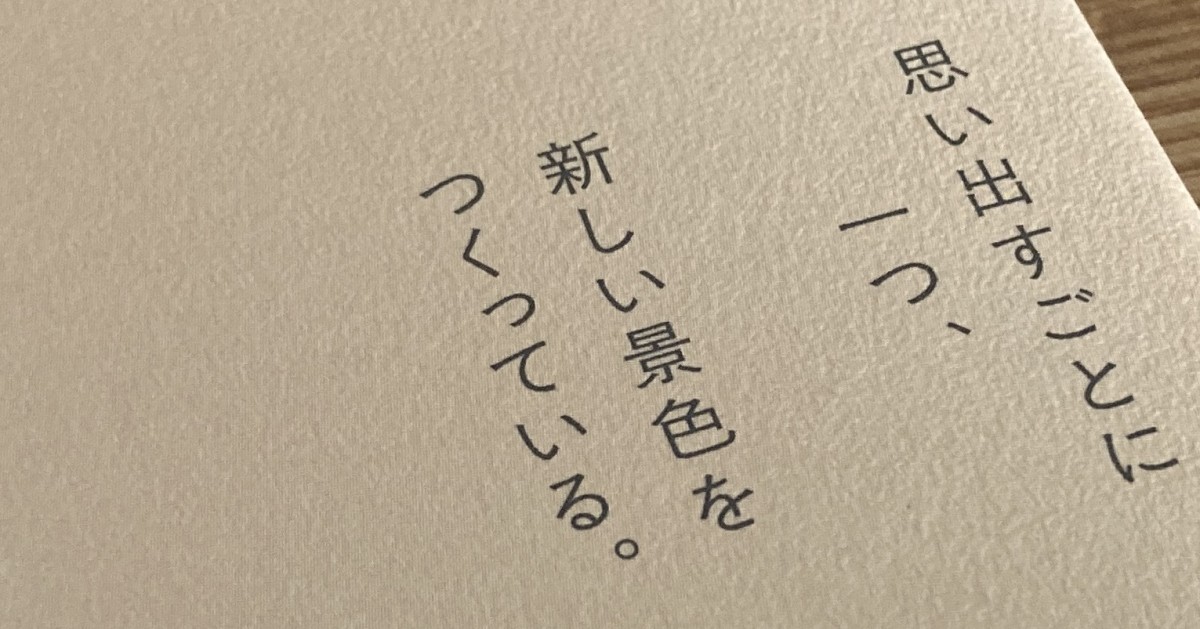 思い出すごとに
一つ、
新しい景色を
つくっている。